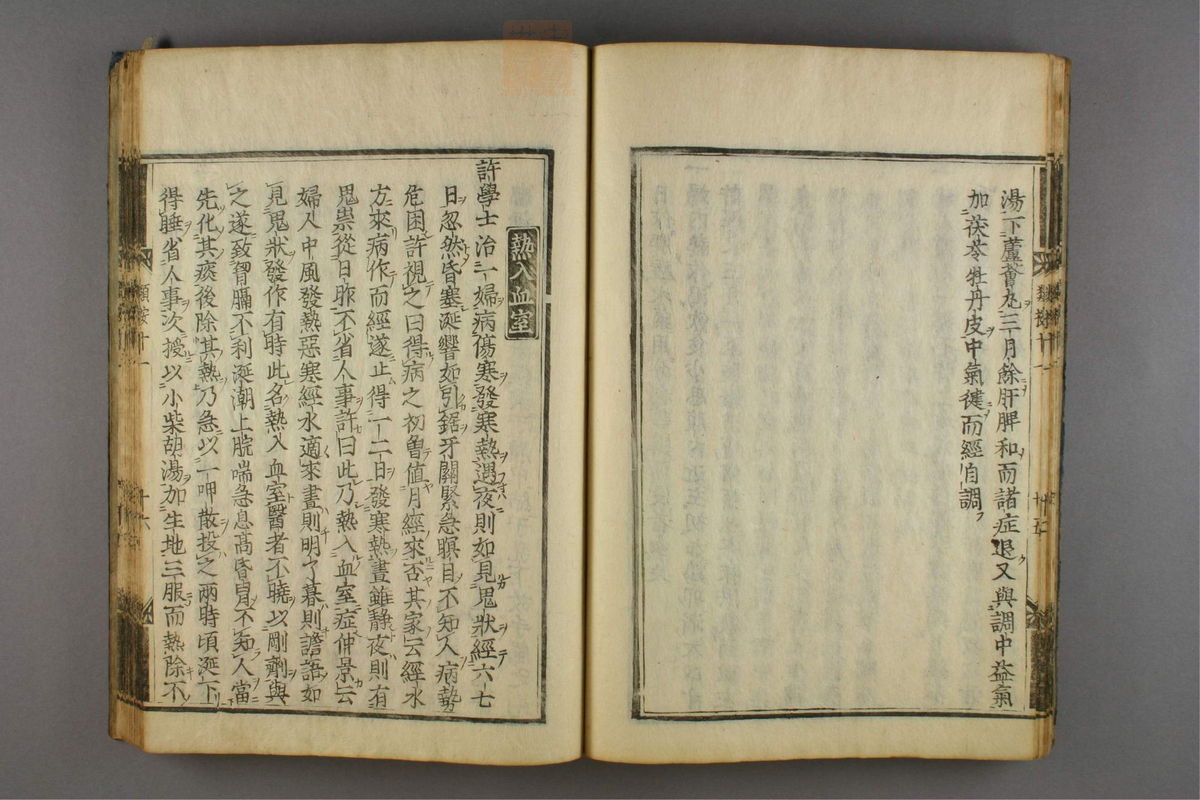 湯下蘆薈丸三月餘肝脾和而諸症退又與調中益氣
加茯苓牡丹皮中氣徤而經自調
熱入血室
許學士治一婦病傷寒發寒熱遇夜則如見鬼狀經六七
日忽然昏塞涎響如引鋸牙關緊急瞑目不知人病勢
危困許視之曰得病之初曽值月經來否其家云經水
方來病作而經遂止得一二日發寒熱晝雖静夜則有
鬼祟從日昨不省人事許曰此乃熱入血室症仲景云
婦人中風發熱惡寒經水適來晝則明了暮則譫語如
見鬼狀發作有時此名熱入血室醫者不曉以剛劑與
之遂致胷膈不利涎潮上脘喘急息髙昏冐不知人當
先化其痰後除其熱乃急以一呷散投之兩時頃涎下
得睡省人事次授以小柴胡湯加生地三服而熱除不